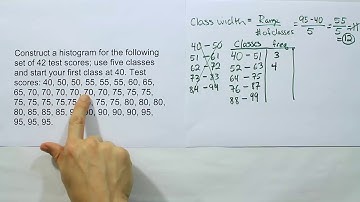 Construct a histogram for the following
set of 42 test scores; use five classes
and start your first class at 40. Test
scores: 40, 50, 50, 55, 55, 55, 60, 65,
65, 70, 70, 70, 70, 70, 70, 75, 75, 75,
75, 75, 75, 75.75, 75, 75, 80, 80, 80,
80, 85, 85, 85, 90, 90, 90, 90, 95,
95, 95.
Class width = Range / # of classes = 95-40 / 5 = 55 / 5 = 11
12
40 - 50
51 - 61
62 - 72
73 - 83
84 - 94
Classes freq
40 - 51 3
52 - 63 4
64 - 75
76 - 87
88 - 99